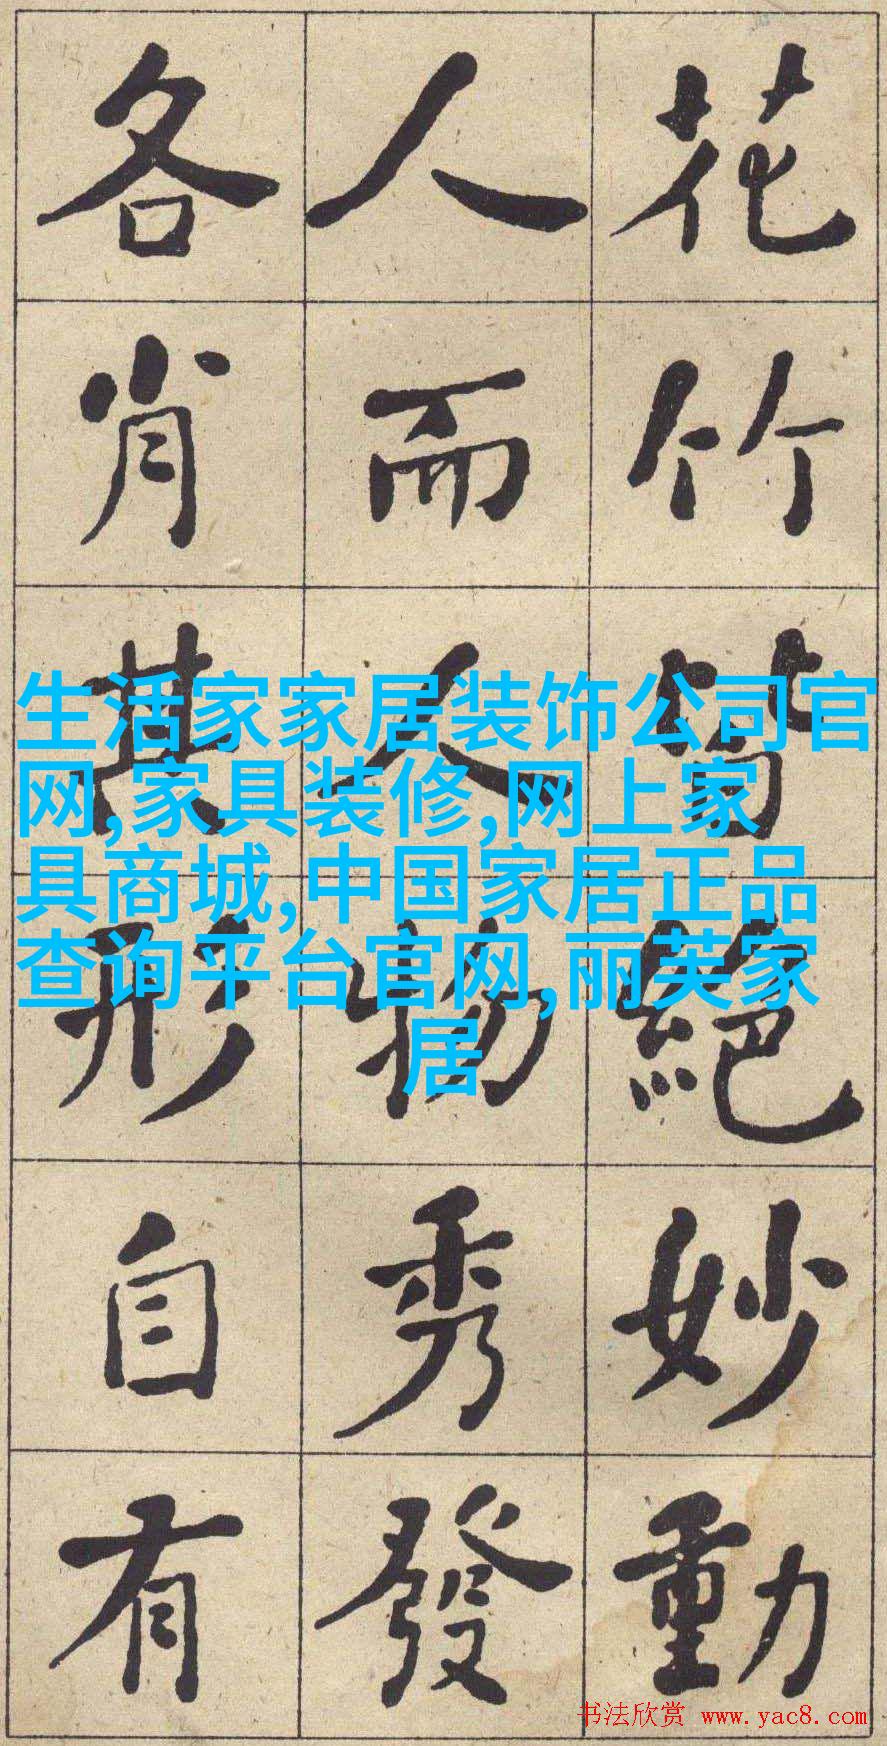 花竹皆絕妙動
人而人物秀發
各肖其形自有
生活家家居装饰公司官
网,家具装修,网上家
具商城,中国家居正品
查询平台官网,丽芙家
居
书法欣赏 www.yac8.com